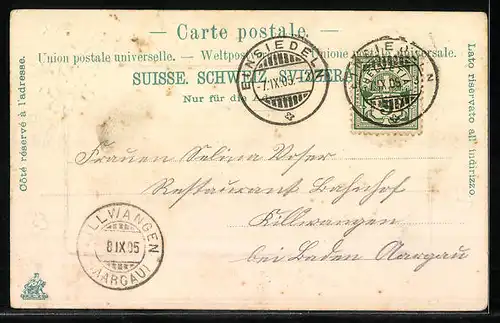 Carte postale.
Union postale universelle. — Weltpost Unione postale universale.
SUISSE. SCHWEIZ. SVIZZERA
Nur für die
Côté réservé à l'adresse.
Lato riservato all' indirizzo.
EINSIEDELN
-7.IX.05.
Frauen Selina Voser
Restaurant Bahnhof
Killwangen
bei Baden Aargau
LLWANGEN
8 IX 05
(AARGAU)